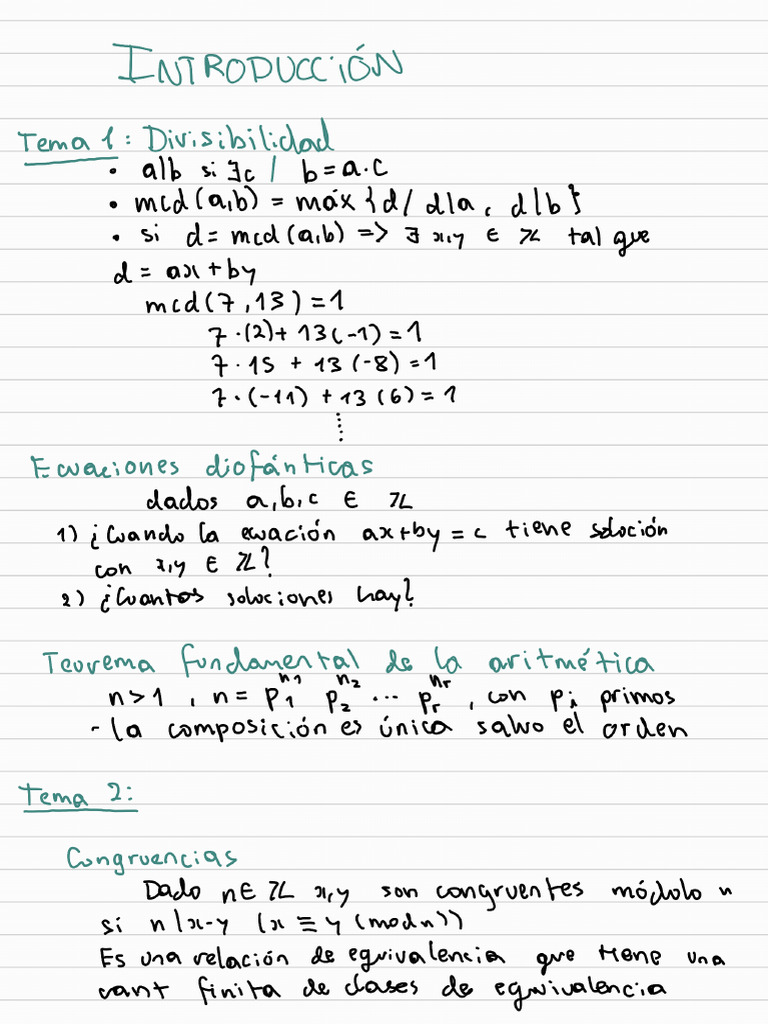 INTRODUCCIÓN
Tema 1: Divisibilidad
• a|b si ∃c / b=a·c
• mcd(a,b) = máx {d/ d|a, d|b}
• si d=mcd(a,b) => ∃ x,y ∈ ℤ tal que
d = ax+by
mcd(7,13)=1
7·(2)+13(-1)=1
7·15 + 13(-8)=1
7·(-11) + 13(6)=1
⋮
Ecuaciones diofánticas
dados a,b,c ∈ ℤ
1) ¿Cuando la ecuación ax+by=c tiene solución
con x,y ∈ ℤ?
2) ¿Cuantas soluciones hay?
Teorema fundamental de la aritmética
n>1, n = p₁^n₁ p₂^n₂ ... pᵣ^nᵣ, con pᵢ primos
- la composición es única salvo el orden
Tema 2:
Congruencias
Dado n∈ℤ x,y son congruentes módulo n
si n|x-y (x≡y (mod n))
Es una relación de equivalencia que tiene una
cant finita de clases de equivalencia